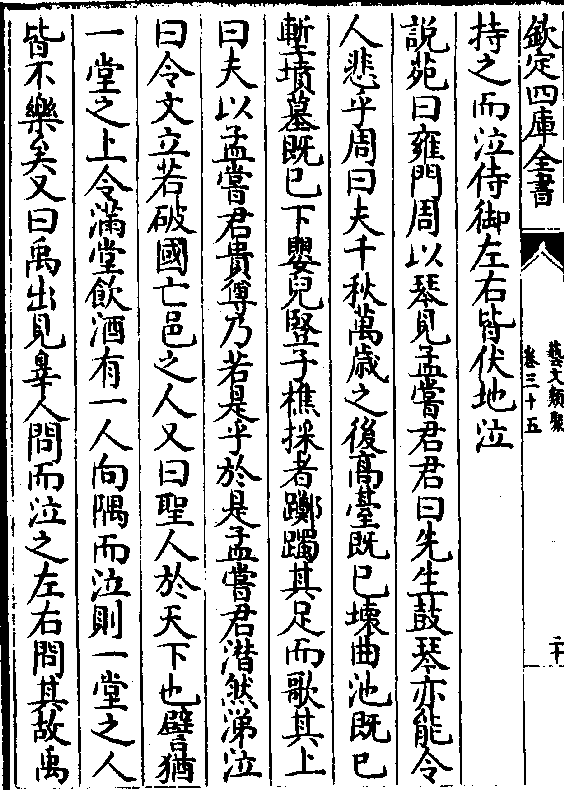 欽定四庫全書
藝文類聚
卷三十五
二十
持之而泣侍御左右皆伏地泣
說苑曰雍門周以琴見孟嘗君君曰先生鼓琴亦能令
人悲乎周曰夫千秋萬歲之後高臺既已壞曲池既已
塹墳墓既已下嬰兒豎子樵採者躑躅其足而歌其上
曰夫以孟嘗君貴尊乃若是乎於是孟嘗君潸然涕泣
曰令文立若破國亡邑之人又曰聖人於天下也譬猶
一堂之上令滿堂飲酒有一人向隅而泣則一堂之人
皆不樂矣又曰禹出見辠人問而泣之左右問其故禹